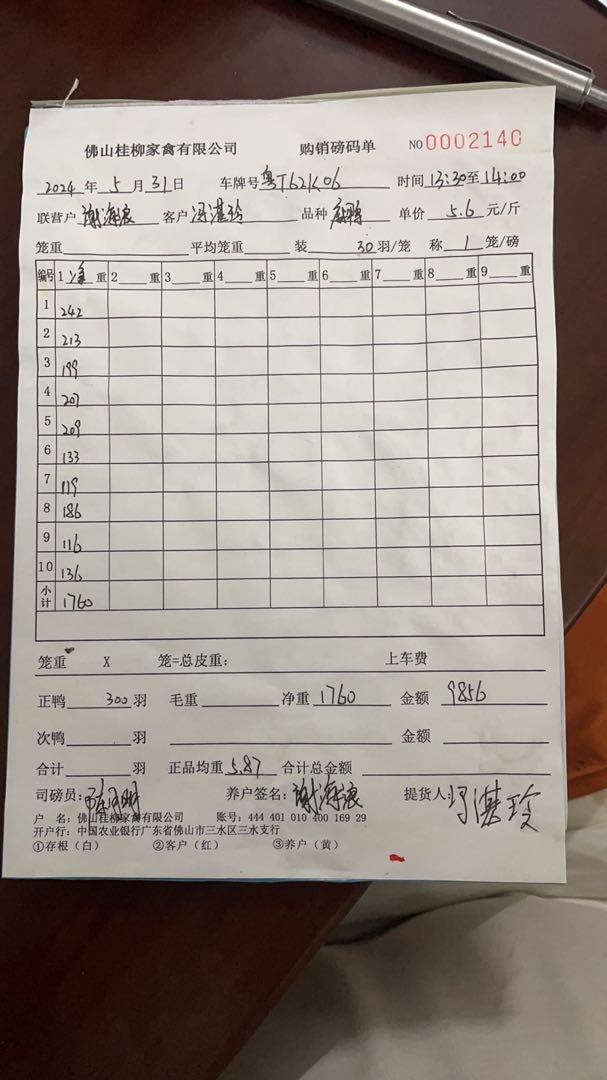 佛山桂柳家禽有限公司 购销磅码单 NO 0002140
2024 年 5 月 31 日 车牌号 粤T621K06 时间 13:30至14:00
联营户 谢海浪 客户 冯湛玲 品种 麻鸭 单价 5.6 元/斤
笼重 平均笼重 装 30 羽/笼 称 1 笼/磅
编号 1 净 重 2 重 3 重 4 重 5 重 6 重 7 重 8 重 9 重
1 242
2 213
3 199
4 207
5 209
6 133
7 119
8 186
9 116
10 136
小计 1760
笼重 X 笼=总皮重: 上车费
正鸭 300 羽 毛重 净重 1760 金额 9856
次鸭 羽 金额
合计 羽 正品均重 5.87 合计总金额
司磅员: 养户签名: 谢海浪 提货人: 冯湛玲
户 名: 佛山桂柳家禽有限公司 账号: 444 401 010 400 169 29
开户行: 中国农业银行广东省佛山市三水区三水支行
①存根(白) ②客户(红) ③养户(黄)